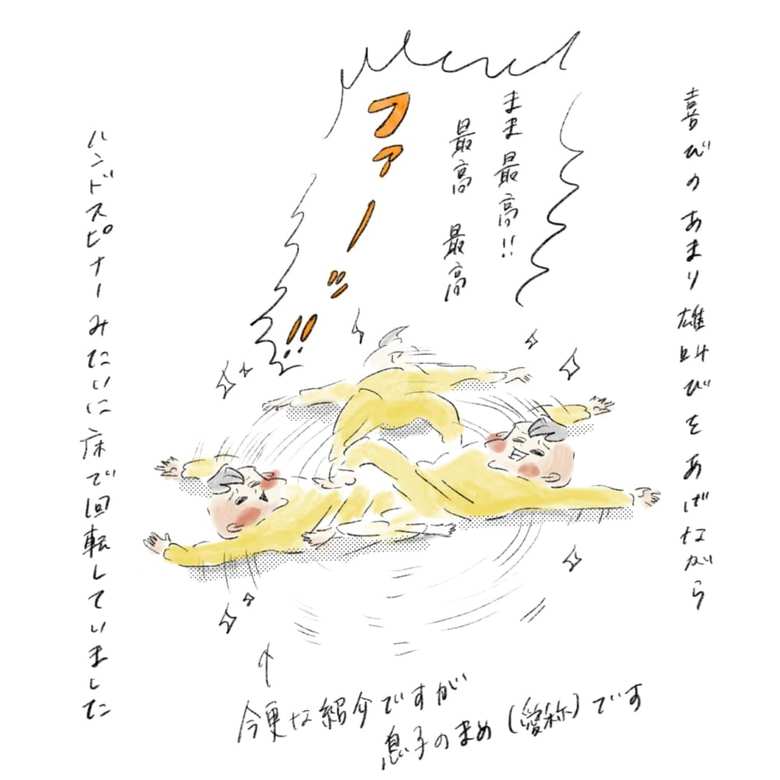 喜びのあまり雄叫びをあげながら
まま最高!!
最高 最高
ファーッ!!
ハンドスピナーみたいに床で回転していました
今更な紹介ですが
息子のまめ(愛称)です